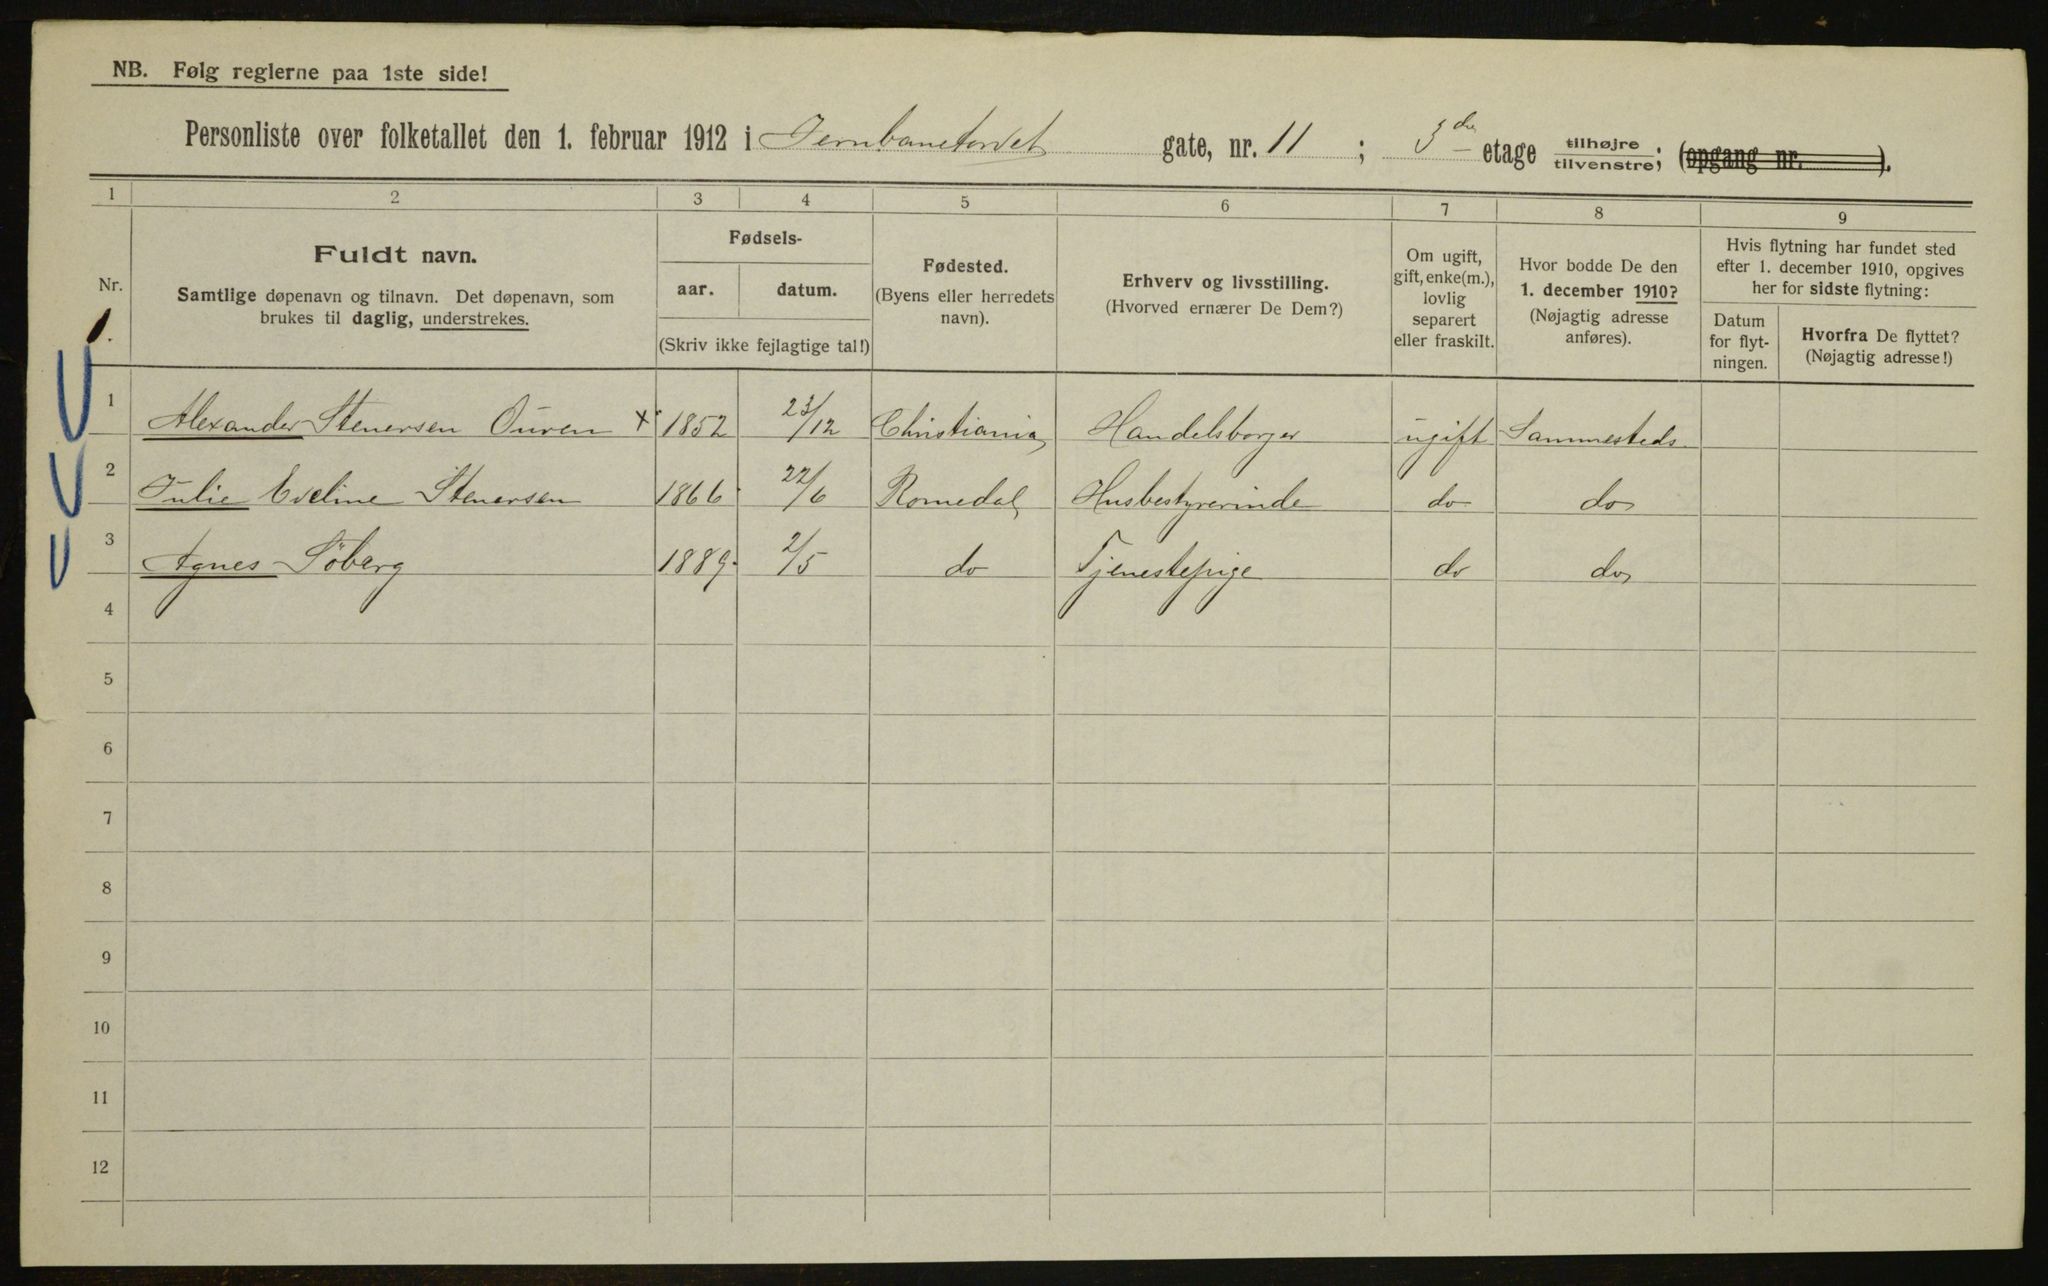 NB. Følg reglerne paa 1ste side!
Personliste over folketallet den 1. februar 1912 i Jernbanetorvet gate, nr. 11 ; 3die etage tilhøjre tilvenstre; (opgang nr. ).
1 2 3 4 5 6 7 8 9
Nr.
Fuldt navn.
Samtlige døpenavn og tilnavn. Det døpenavn, som
brukes til daglig, understrekes.
Fødsels-
aar. datum.
(Skriv ikke fejlagtige tal!)
Fødested.
(Byens eller herredets
navn).
Erhverv og livsstilling.
(Hvorved ernærer De Dem?)
Om ugift,
gift, enke(m.),
lovlig
separert
eller fraskilt.
Hvor bodde De den
1. december 1910?
(Nøjagtig adresse
anføres).
Hvis flytning har fundet sted
efter 1. december 1910, opgives
her for sidste flytning:
Datum
for flyt-
ningen.
Hvorfra De flyttet?
(Nøjagtig adresse!)
1 Alexander Stenersen Ouren x 1852 23/12 Christiania Handelsborger ugift Sammesteds
2 Julie Eveline Stenersen 1866 22/6 Romedal Husbestyrerinde do do
3 Agnes Söberg 1889 2/5 do Tjenestepige do do
4
5
6
7
8
9
10
11
12